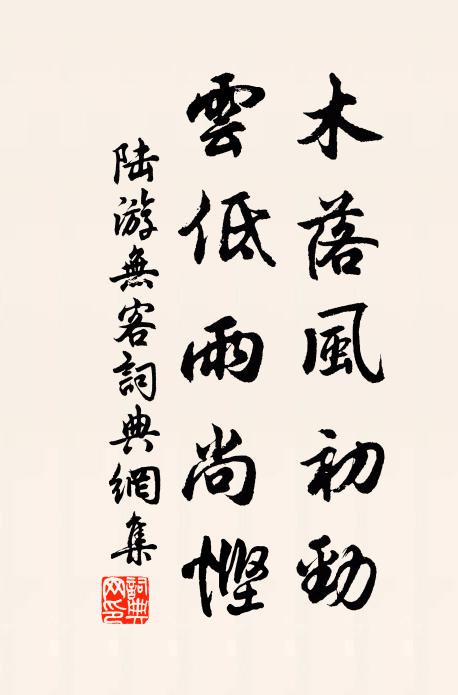 木落風初勁
雲低雨尚慳
陸游無客詞典網集
詞典網印